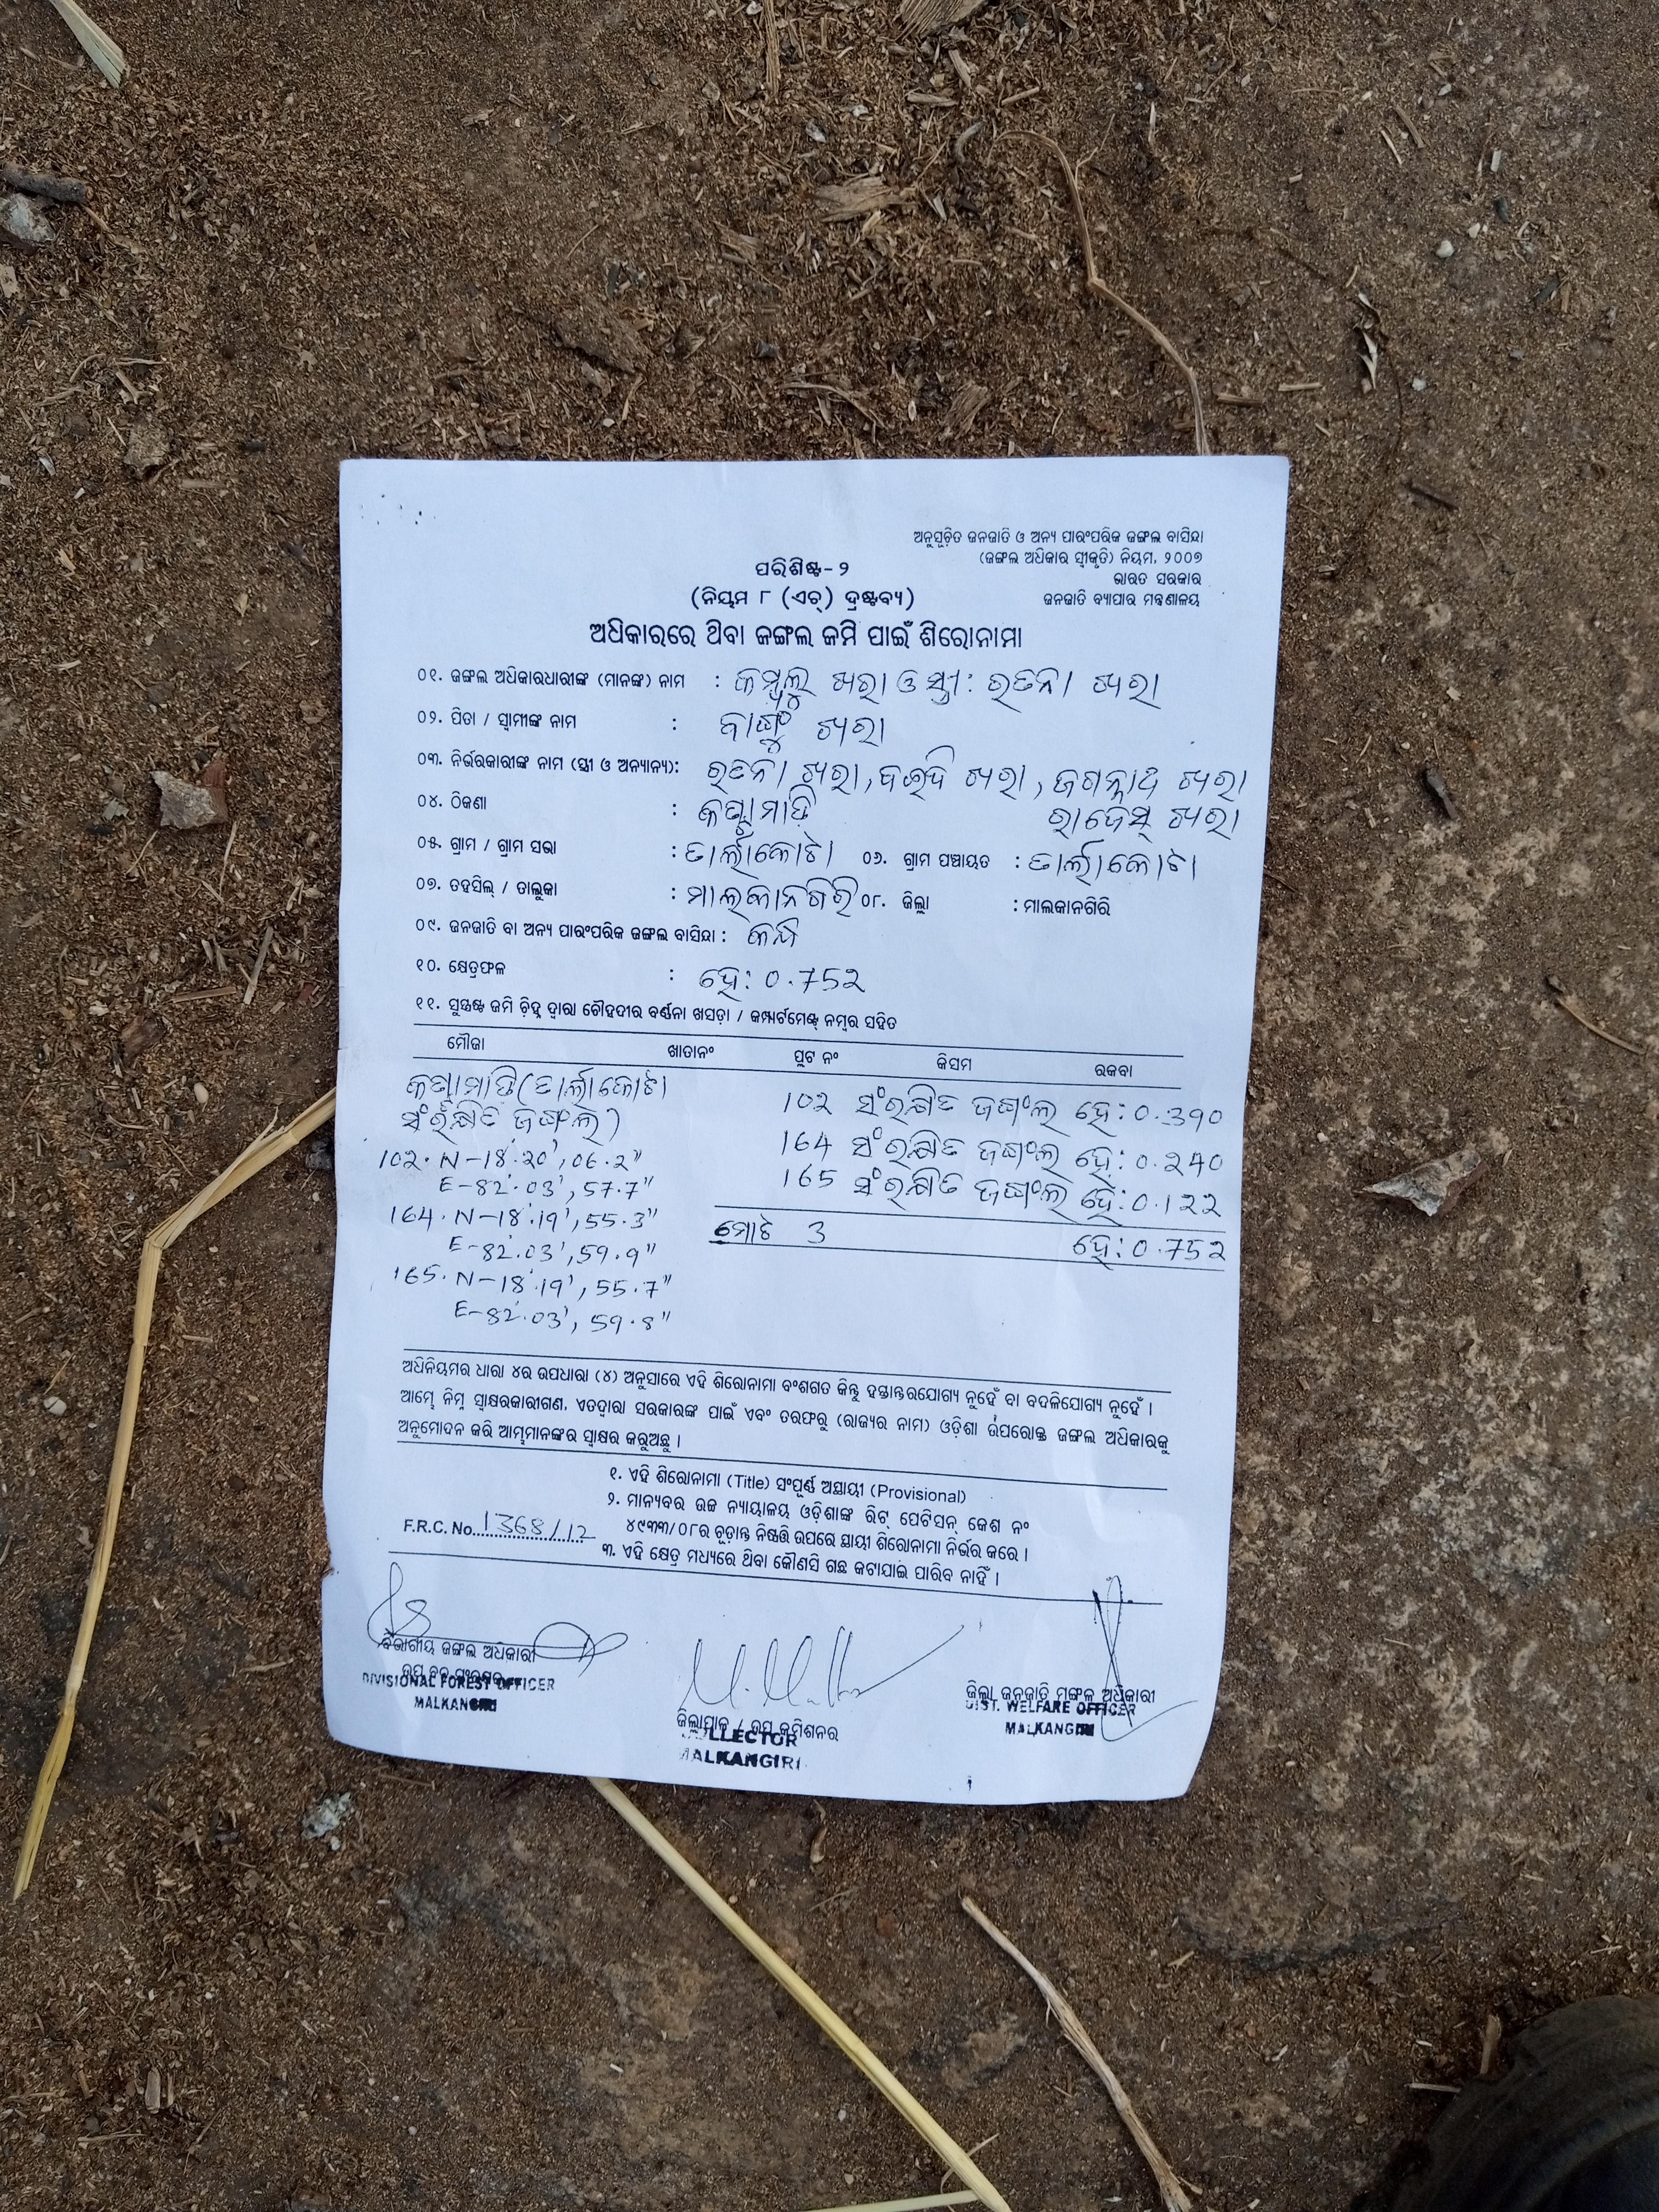 ଅନୁସୂଚିତ ଜନଜାତି ଓ ଅନ୍ୟ ପାରଂପରିକ ଜଙ୍ଗଲ ବାସିନ୍ଦା
(ଜଙ୍ଗଲ ଅଧିକାର ସ୍ୱୀକୃତି) ନିୟମ, ୨୦୦୭
ଭାରତ ସରକାର
ଜନଜାତି ବ୍ୟାପାର ମନ୍ତ୍ରଣାଳୟ
ପରିଶିଷ୍ଟ-୨
(ନିୟମ ୮ (ଏଚ୍) ଦ୍ରଷ୍ଟବ୍ୟ)
ଅଧିକାରରେ ଥିବା ଜଙ୍ଗଲ ଜମି ପାଇଁ ଶିରୋନାମା
୦୧. ଜଙ୍ଗଲ ଅଧିକାରଧାରୀଙ୍କ (ମାନଙ୍କ) ନାମ : ଖରା ଓ ସ୍ତ୍ରୀ: ରତନା ଖରା
୦୨. ପିତା / ସ୍ୱାମୀଙ୍କ ନାମ : ଖରା
୦୩. ନିର୍ଭରକାରୀଙ୍କ ନାମ (ସ୍ତ୍ରୀ ଓ ଅନ୍ୟାନ୍ୟ): ରତନା ଖରା, ଖରା, ଜଗନ୍ନାଥ ଖରା
ରାଜେସ୍ ଖରା
୦୪. ଠିକଣା :
୦୫. ଗ୍ରାମ / ଗ୍ରାମ ସଭା : ତାର୍ଲାକୋଟା ୦୬. ଗ୍ରାମ ପଞ୍ଚାୟତ : ତାର୍ଲାକୋଟା
୦୭. ତହସିଲ୍ / ତାଲୁକା : ମାଲକାନଗିରି ୦୮. ଜିଲ୍ଲା : ମାଲକାନଗିରି
୦୯. ଜନଜାତି ବା ଅନ୍ୟ ପାରଂପରିକ ଜଙ୍ଗଲ ବାସିନ୍ଦା :
୧୦. କ୍ଷେତ୍ରଫଳ : ହେ: 0.752
୧୧. ସୁସ୍ପଷ୍ଟ ଜମି ଚିହ୍ନ ଦ୍ୱାରା ଚୌହଦୀର ବର୍ଣ୍ଣନା ଖସଡ଼ା / କମ୍ପାର୍ଟମେଣ୍ଟ୍ ନମ୍ବର ସହିତ
ମୌଜା ଖାତାନଂ ପ୍ଲଟ ନଂ କିସମ ରକବା
(ତାର୍ଲାକୋଟା
ସଂରକ୍ଷିତ ଜଙ୍ଗଲ)
102 ସଂରକ୍ଷିତ ଜଙ୍ଗଲ ହେ: 0.390
164 ସଂରକ୍ଷିତ ଜଙ୍ଗଲ ହେ: 0.240
165 ସଂରକ୍ଷିତ ଜଙ୍ଗଲ ହେ: 0.122
ମୋଟ 3 ହେ: 0.752
102. N-18°.20', 06.2"
E-82°.03', 57.7"
164. N-18°.19', 55.3"
E-82°.03', 59.9"
165. N-18°.19', 55.7"
E-82°.03', 59.8"
ଅଧିନିୟମର ଧାରା ୪ର ଉପଧାରା (୪) ଅନୁସାରେ ଏହି ଶିରୋନାମା ବଂଶଗତ କିନ୍ତୁ ହସ୍ତାନ୍ତରଯୋଗ୍ୟ ନୁହେଁ ବା ବଦଳିଯୋଗ୍ୟ ନୁହେଁ ।
ଆମ୍ଭେ ନିମ୍ନ ସ୍ୱାକ୍ଷରକାରୀଗଣ, ଏତଦ୍ୱାରା ସରକାରଙ୍କ ପାଇଁ ଏବଂ ତରଫରୁ (ରାଜ୍ୟର ନାମ) ଓଡ଼ିଶା ଉପରୋକ୍ତ ଜଙ୍ଗଲ ଅଧିକାରକୁ
ଅନୁମୋଦନ କରି ଆମ୍ଭମାନଙ୍କର ସ୍ୱାକ୍ଷର କରୁଅଛୁ ।
୧. ଏହି ଶିରୋନାମା (Title) ସଂପୂର୍ଣ୍ଣ ଅସ୍ଥାୟୀ (Provisional)
୨. ମାନ୍ୟବର ଉଚ୍ଚ ନ୍ୟାୟାଳୟ ଓଡ଼ିଶାଙ୍କ ରିଟ୍ ପେଟିସନ୍ କେଶ ନଂ
୪୯୩୩/୦୮ର ଚୂଡ଼ାନ୍ତ ନିଷ୍ପତ୍ତି ଉପରେ ସ୍ଥାୟୀ ଶିରୋନାମା ନିର୍ଭର କରେ ।
୩. ଏହି କ୍ଷେତ୍ର ମଧ୍ୟରେ ଥିବା କୌଣସି ଗଛ କଟାଯାଇ ପାରିବ ନାହିଁ ।
F.R.C. No. 1368/12
ବିଭାଗୀୟ ଜଙ୍ଗଲ ଅଧିକାରୀ
ଉପ ବନ ସଂରକ୍ଷକ
DIVISIONAL FOREST OFFICER
MALKANGIRI
ଜିଲ୍ଲାପାଳ / ଉପ କମିଶନର
COLLECTOR
MALKANGIRI
ଜିଲ୍ଲା ଜନଜାତି ମଙ୍ଗଳ ଅଧିକାରୀ
DIST. WELFARE OFFICER
MALKANGIRI